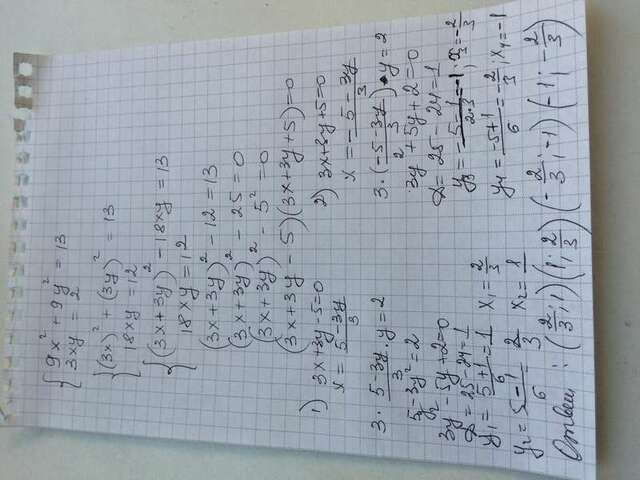 { 9x² + 9y² = 13
3xy = 2
{ (3x)² + (3y)² = 13
18xy = 12
{ (3x + 3y)² - 18xy = 13
18xy = 12
(3x + 3y)² - 12 = 13
(3x + 3y)² - 25 = 0
(3x + 3y)² - 5² = 0
(3x + 3y - 5)(3x + 3y + 5) = 0
1) 3x + 3y - 5 = 0
x = 5-3y/3
3 · 5-3y/3 · y = 2
5 - 3y² = 2
3y² - 5y + 2 = 0
D = 25 - 24 = 1
y₁ = 5+1/6 = 1 x₁ = 2/3
y₂ = 5-1/6 = 2/3 x₂ = 1
2) 3x + 3y + 5 = 0
x = -5-3y/3
3 · (-5-3y/3) · y = 2
3y² + 5y + 2 = 0
D = 25 - 24 = 1
y₃ = -5-1/2·3 = -1; x₃ = -2/3
y₄ = -5+1/6 = -2/3; x₄ = -1
Ответ: (2/3; 1) (1; 2/3) (-2/3; -1) (-1; -2/3)